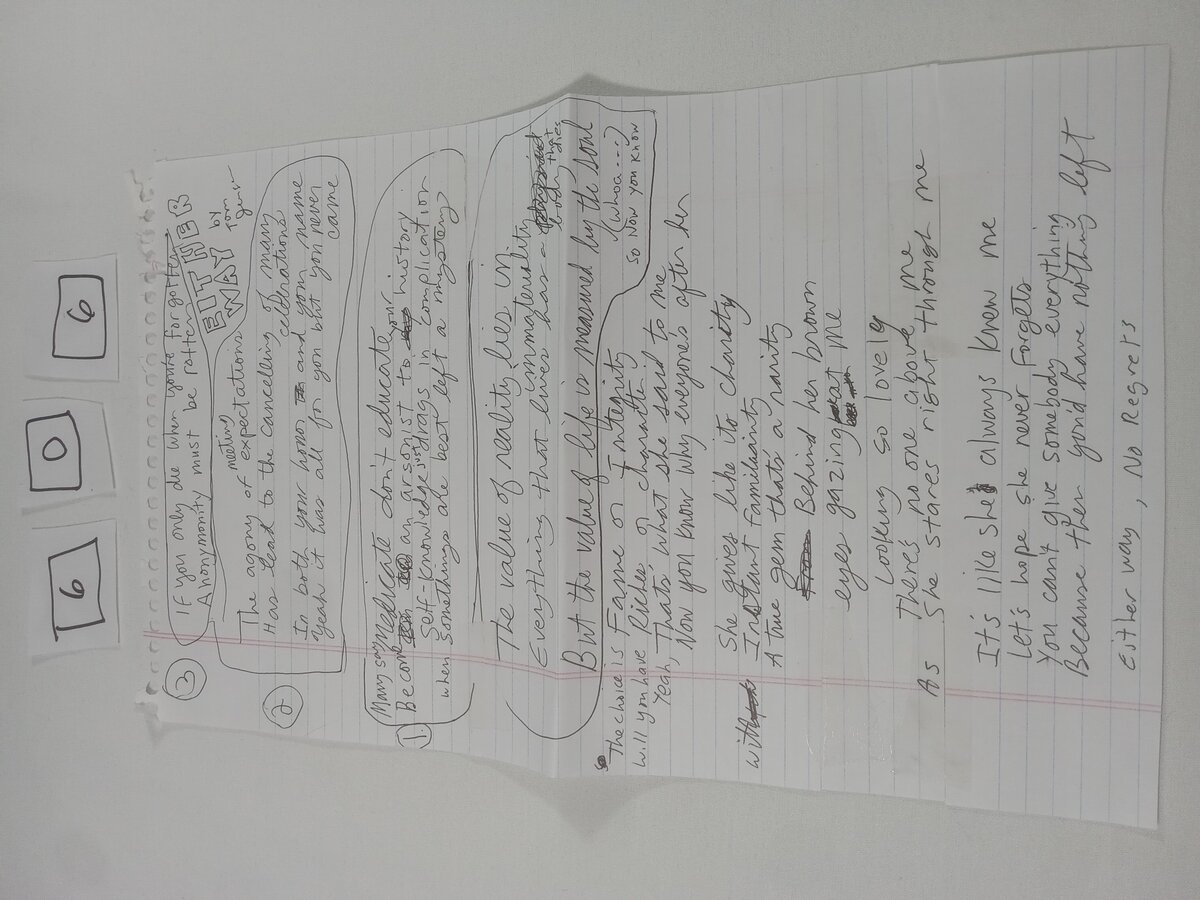 6 0 6
3 If you only die when you're forgotten
Anonymonity must be rotten
EITHER
WAY by
Tom
The agony of meeting expectations
Has lead to the cancelling of many
celebrations
2 In both your honor and your name
Yeah it was all for you but you never
came
Many say Medicate don't educate
Become an arsonist to your history
1. Self-Knowledge just drags in complication
when Somethings are best left a mystery
The value of reality lies in
immateriality
Everything that lives has a body that dies
But the value of life is measured by the soul
So The choice is Fame or Integrity (whoa---)
Will you have Riches or charaty? So NOW YOU KNOW
Yeah, Thats' what she said to me
Now you know why everyone's after her
She gives like its charity
with Instant familiarity
A true gem that's a rarity
Behind her brown
eyes gazing at me
Looking so lovely
There's no one above me
As She stares right through me
It's like she always knew me
Let's hope she never Forgets
You can't give somebody everything
Because then you'd have nothing left
Either way, No Regrets